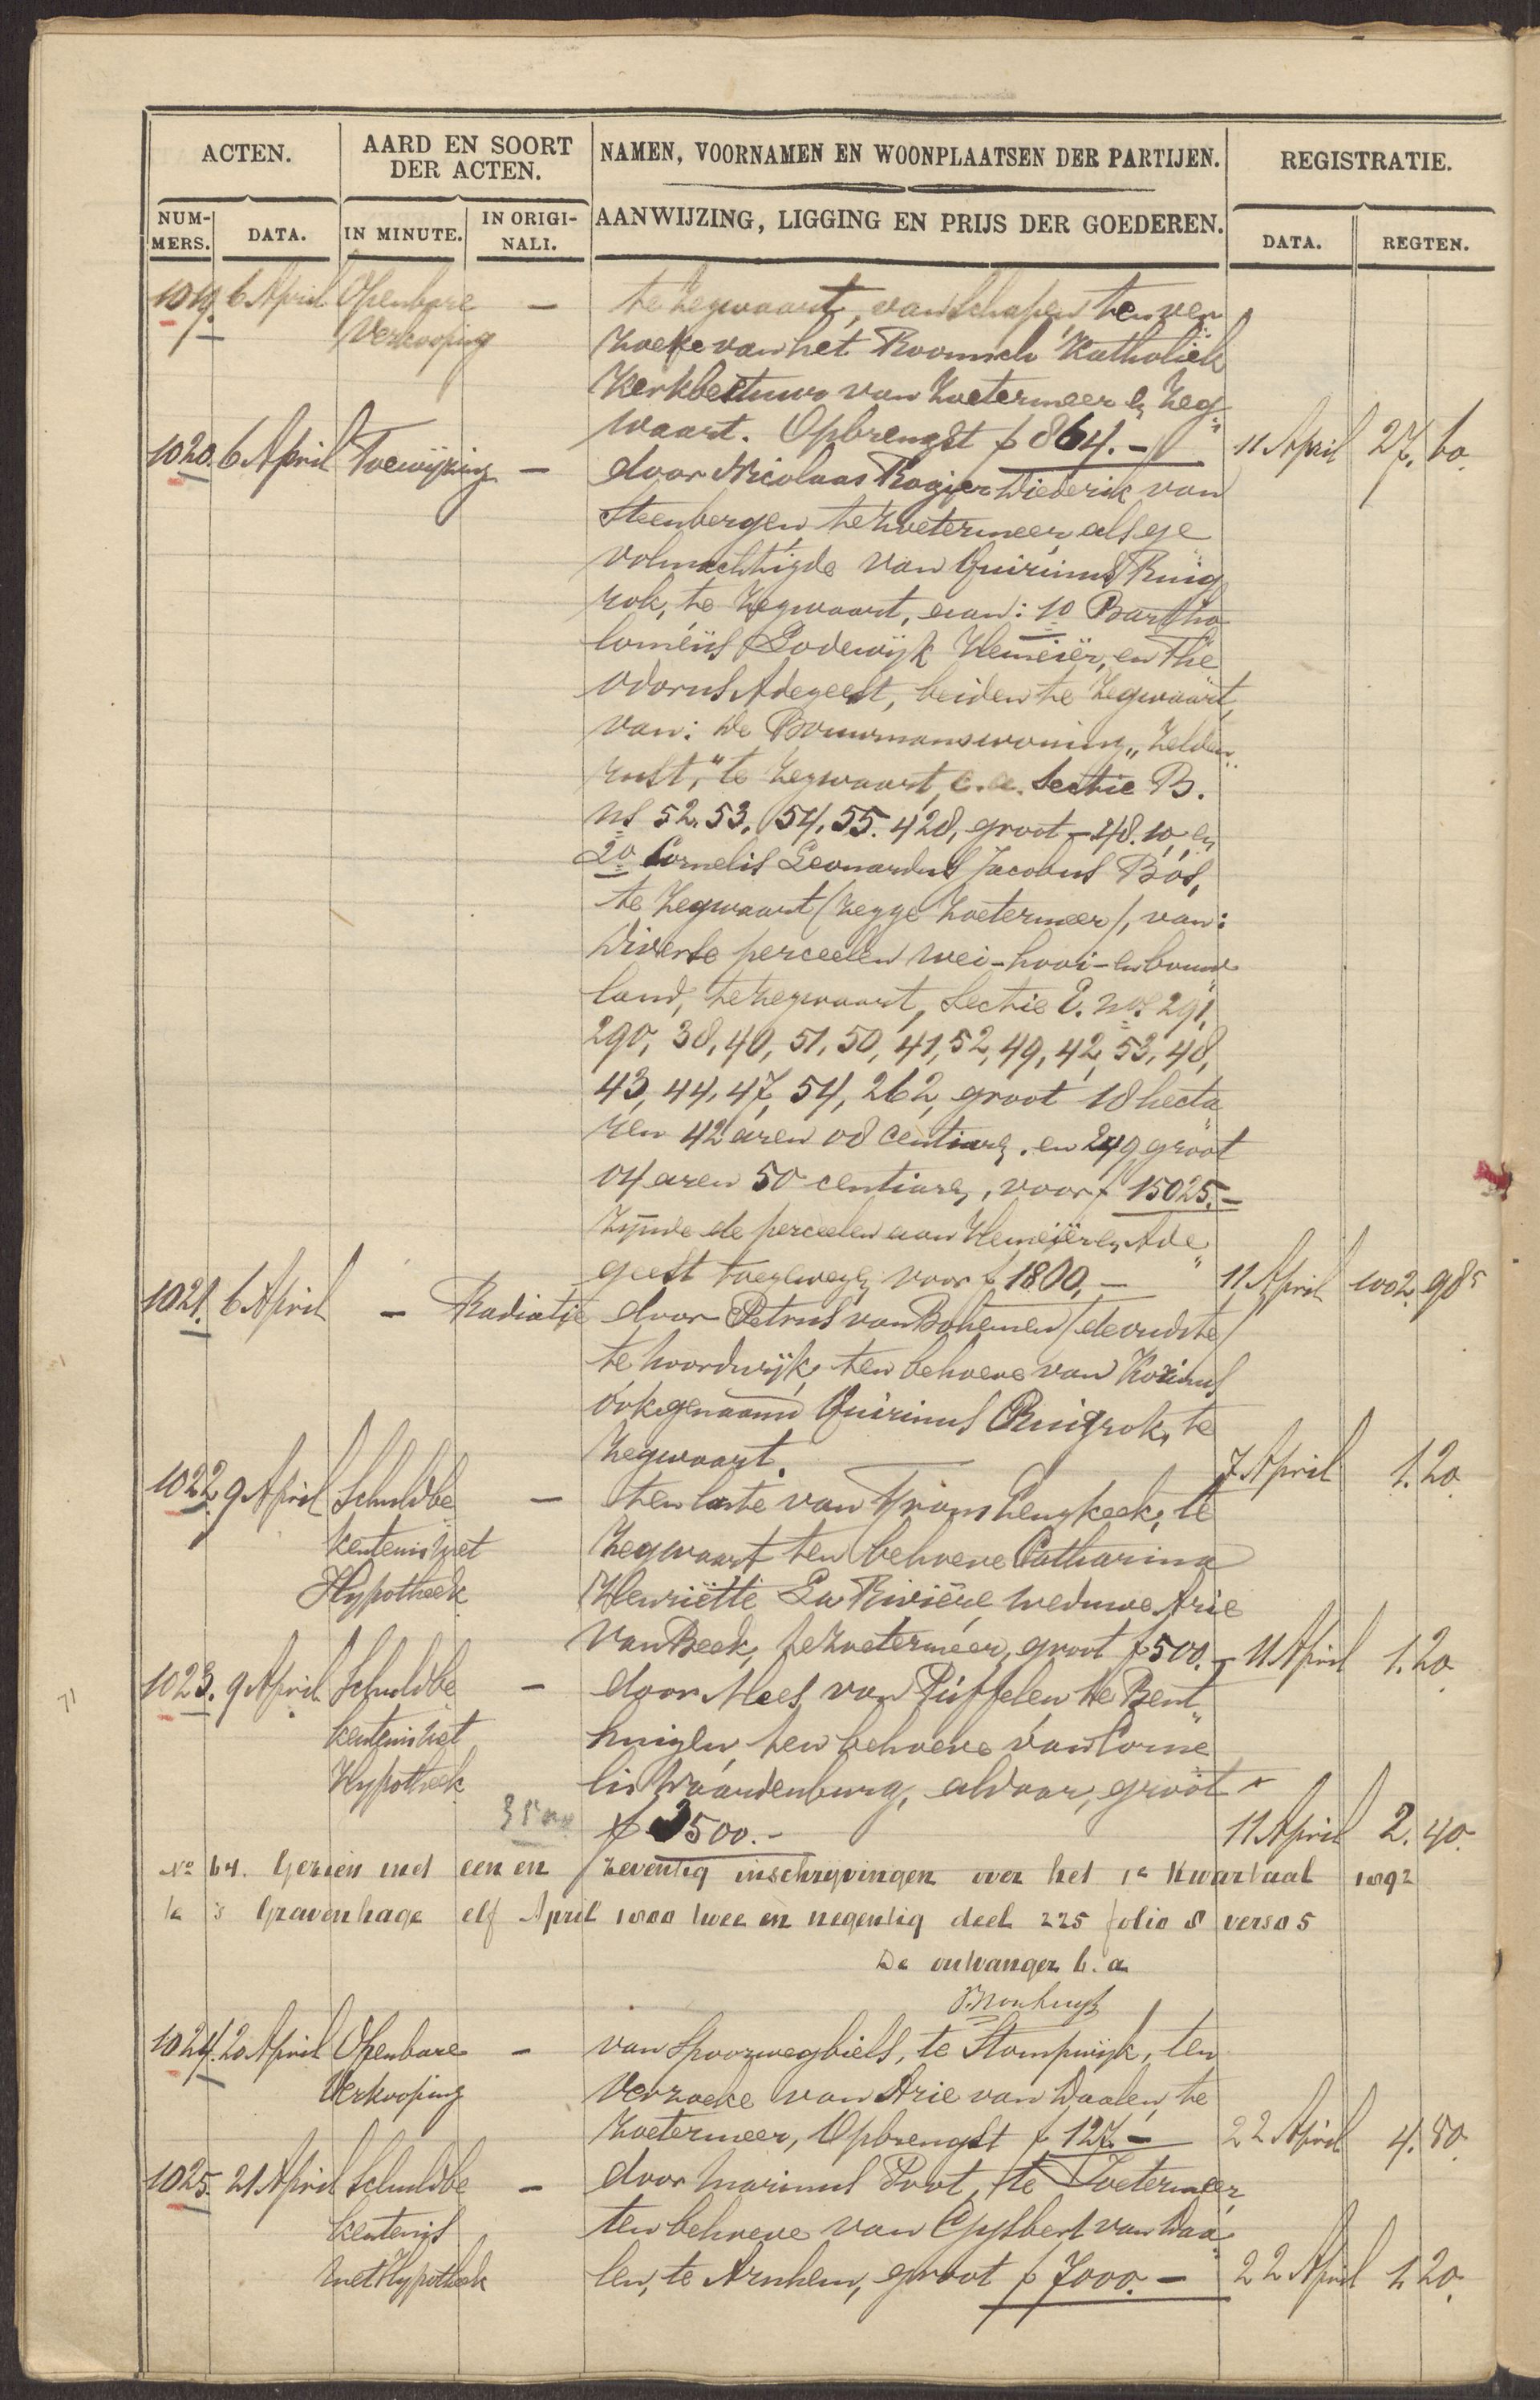 ACTEN.
AARD EN SOORT
DER ACTEN.
NAMEN, VOORNAMEN EN WOONPLAATSEN DER PARTIJEN.
REGISTRATIE.
NUM-
MERS.
DATA.
IN MINUTE.
IN ORIGI-
NALI.
AANWIJZING, LIGGING EN PRIJS DER GOEDEREN.
DATA.
REGTEN.
1019. 6 April Openbare — te Zegwaart, van Schapen, ten ver
Verkooping zoeke van het Roomsch Katholiek
Kerkbestuur van Zoetermeer en Zeg
waart. Opbrengst f 864.- 11 April 27. 60.
1020. 6 April Toewijzing — door Nicolaas Rogier Diederik van
Steenbergen, te Zoetermeer, als ge
volmachtigde van Quirinus Ruig
rok, te Zegwaart, aan: 1o Bartho
lomeüs Lodewijk Hemeiër, en The
odorus Adegeest, beiden te Zegwaart,
van: de Bouwmanswoning „Zelden
rust," te Zegwaart, c.a. Sectie B.
ns 52. 53. 54. 55. 428, groot - 48. 10, en
2o Cornelis Leonardus Jacobus Bos,
te Zegwaart (zegge Zoetermeer), van:
Diverse perceelen wei-hooi-en bouw
land, te Zegwaart, Sectie E. nos 291,
290, 38, 40, 51, 50, 41, 52, 49, 42, 53, 48,
43, 44, 47, 54, 262, groot 18 hecta
ren 42 aren 08 centiaren. en 249 groot
04 aren 50 centiaren, voor f 15025.-
Zijnde de perceelen aan Hemeiër en Ade
geest toegewezen voor f 1800.- 11 April 1002. 985
1021. 6 April — Radiatie door Petrus van Bohemen (de oudste)
te Noordwijk, ten behoeve van Korinus
ook genaamd Quirinus Ruigrok, te
Zegwaart. 7 April 1. 20.
1022. 9 April Schuldbe — ten laste van Frans Lengkeek, te
kentenis met Zegwaart ten behoeve Catharina
Hypotheek Henriëtte La Rivière weduwe Arie
van Beek, te Zoetermeer, groot f 500.- 11 April 1. 20.
1023. 9 April Schuldbe — door Mees van Puffelen te Bent
kentenis met huizen, ten behoeve van Corne
Hypotheek lis Waardenburg, aldaar, groot
f 3500.- 11 April 2. 40.
No 64. Gezien met een en zeventig inschrijvingen over het 1e Kwartaal 1892
te 's Gravenhage elf April 1800 twee en negentig deel 225 folio 8 verso 5
De ontvanger b. a.
1024. 20 April Openbare — van Spoorwegbiels, te Stompwijk, ten
Verkooping verzoeke van Arie van Daalen, te
Zoetermeer, Opbrengst f 127.- 22 April 4. 80.
1025. 21 April Schuldbe — door Marinus Poot, te Zoetermeer,
kentenis ten behoeve van Gijsbert van Daa
met Hypotheek len, te Arnhem, groot f 7000.- 22 April 1. 20.